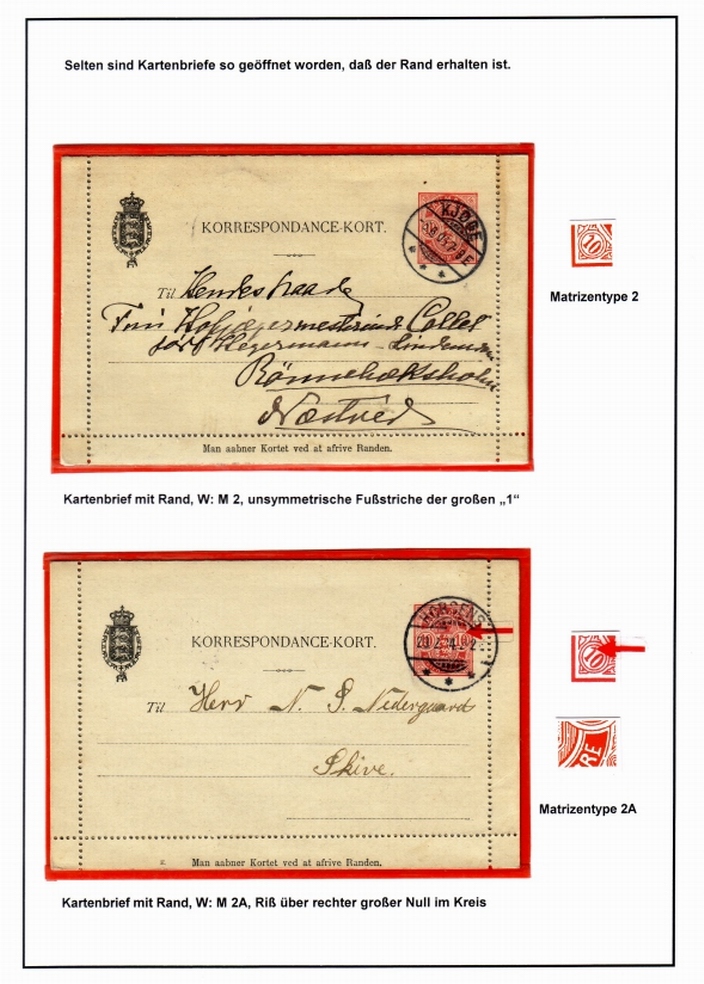 Selten sind Kartenbriefe so geöffnet worden, daß der Rand erhalten ist.
KORRESPONDANCE-KORT.
KJØGE
Til
Næstved
Man aabner Kortet ved at afrive Randen.
10
Matrizentype 2
Kartenbrief mit Rand, W: M 2, unsymmetrische Fußstriche der großen „1“
HORSENS
KORRESPONDANCE-KORT.
Til Herr N. S. Nedergaard
Skive.
Man aabner Kortet ved at afrive Randen.
10
RE
Matrizentype 2A
Kartenbrief mit Rand, W: M 2A, Riß über rechter großer Null im Kreis